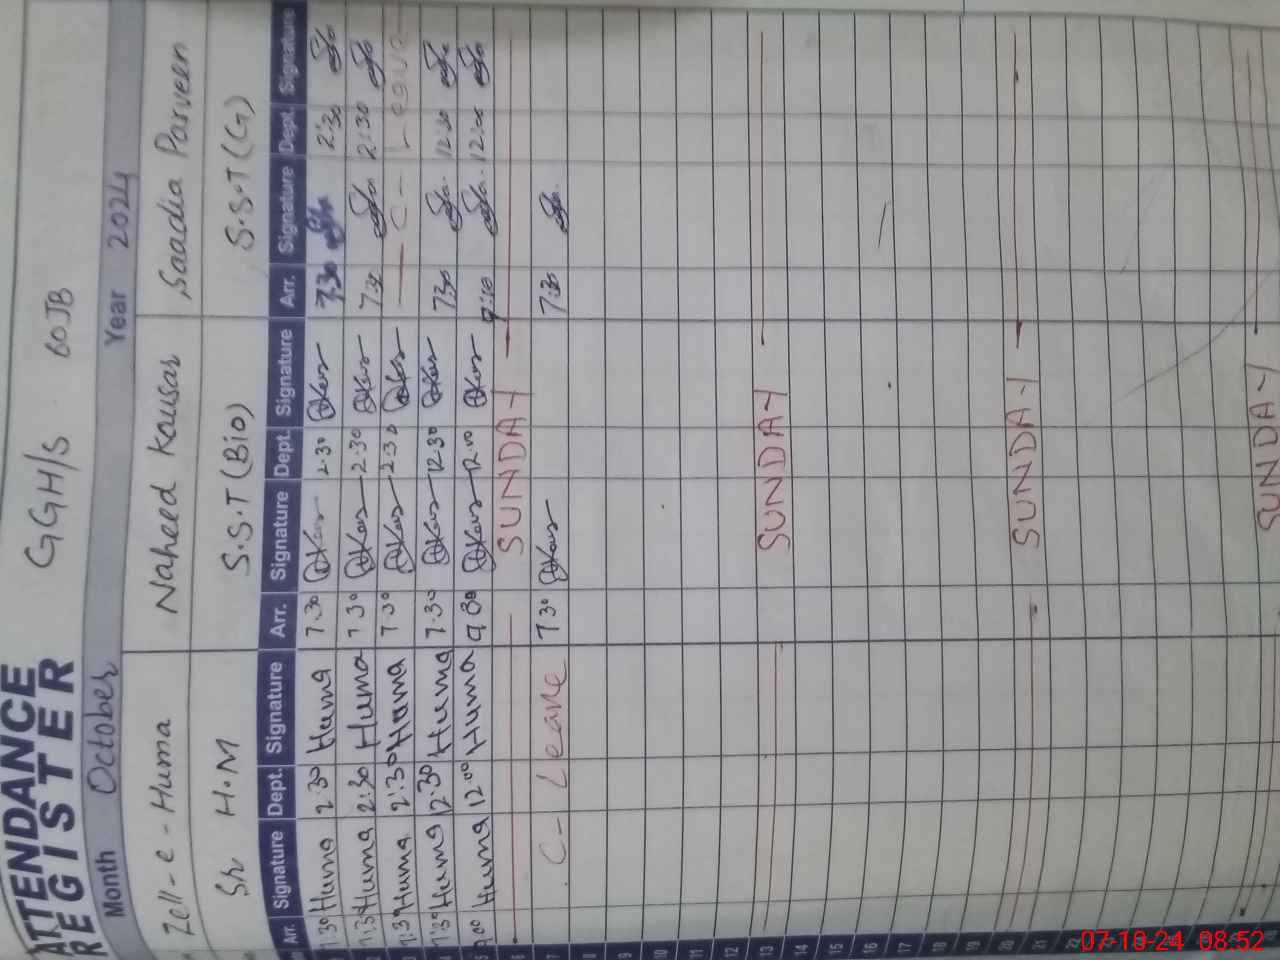 ATTENDANCE
REGISTER
GGH/S 60JB
Month October Year 2024
Zell-e-Huma Naheed Kousar Saadia Parveen
Sr H.M S.S.T (Bio) S.S.T (G)
Arr. Signature Dept. Signature Arr. Signature Dept. Signature Arr. Signature Dept. Signature
7.30 Huma 2.30 Huma 7.30 2.30 7.30 2:30
2 7:30 Huma 2:30 Huma 7.30 2.30 7:30 2:30
3 7:30 Huma 2:30 Huma 7.30 2.30 C- Leave
4 7:30 Huma 12:30 Huma 7.30 12.30 7:30 12:30
5 9.00 Huma 12.00 Huma 9.00 12.00 9:10 12:00
6 SUNDAY
7 C- Leave 7.30 7:30
8
9
10
11
12
13 SUNDAY
14
15
16
17
18
19
20 SUNDAY
21
22
23
SUNDAY
07-10-24 08:52